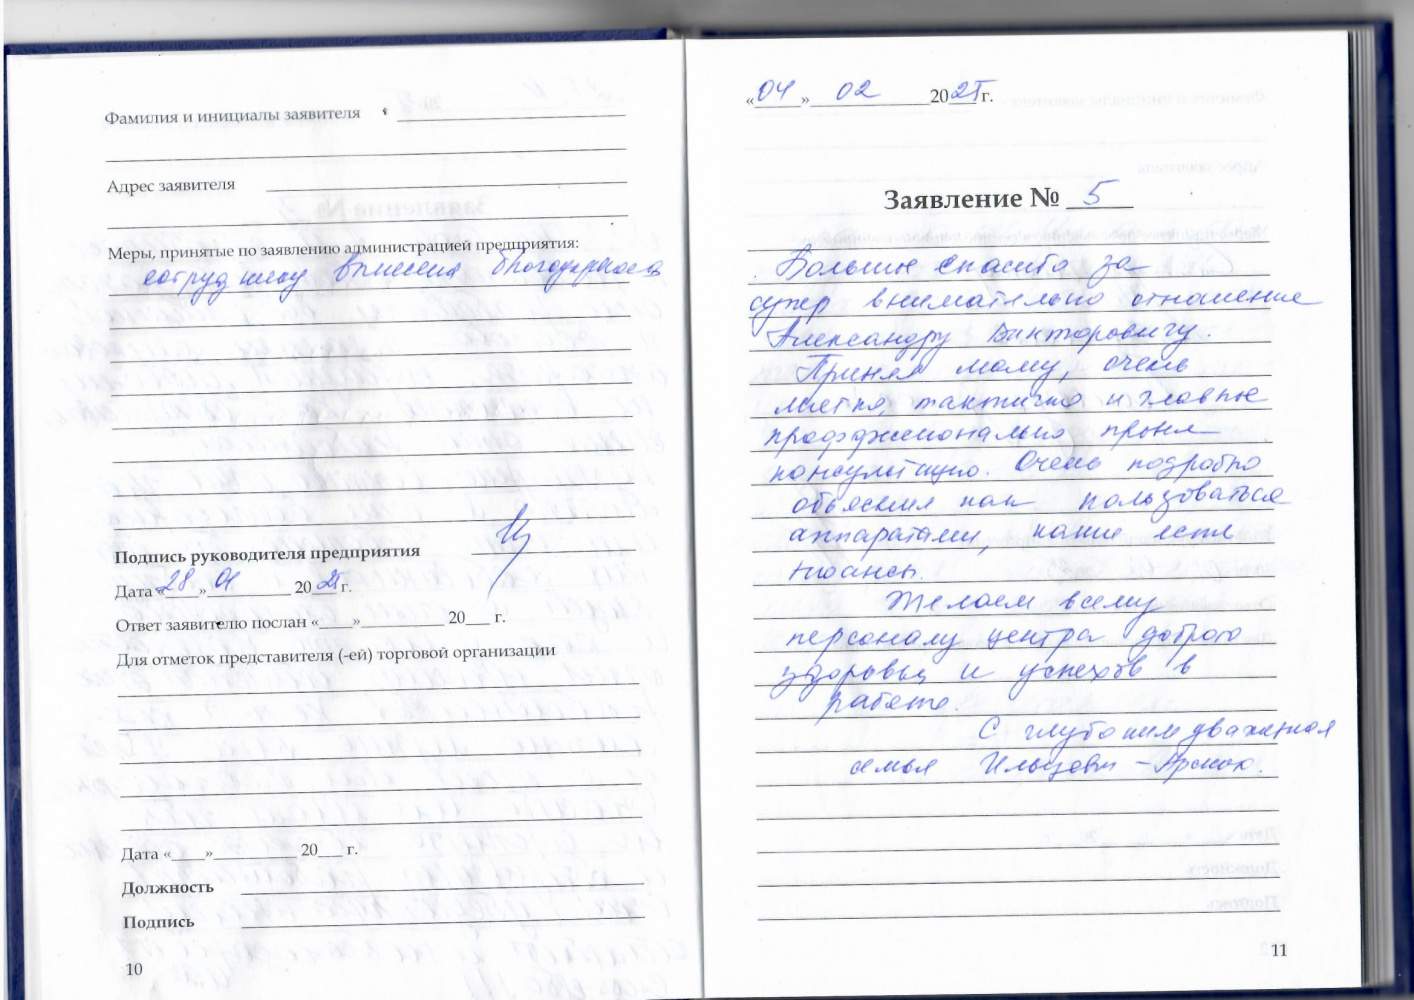 Фамилия и инициалы заявителя
Адрес заявителя
Меры, принятые по заявлению администрацией предприятия:
сотруднику вынесена благодарность
Подпись руководителя предприятия
Дата «28» 01 2025 г.
Ответ заявителю послан «____»__________ 20___ г.
Для отметок представителя (-ей) торговой организации
Дата «____»__________ 20___ г.
Должность
Подпись
10
«04» 02 2025 г.
Заявление № 5
Большое спасибо за
супер внимательно отношение
Александру Викторовичу.
Принял маму, очень
мягко, тактично и главное
профессионально провел
консультацию. Очень подробно
объяснил как пользоваться
аппаратами, какие есть
нюансы.
Желаем всему
персоналу центра доброго
здоровья и успехов в
работе.
С глубоким уважением
семья
11